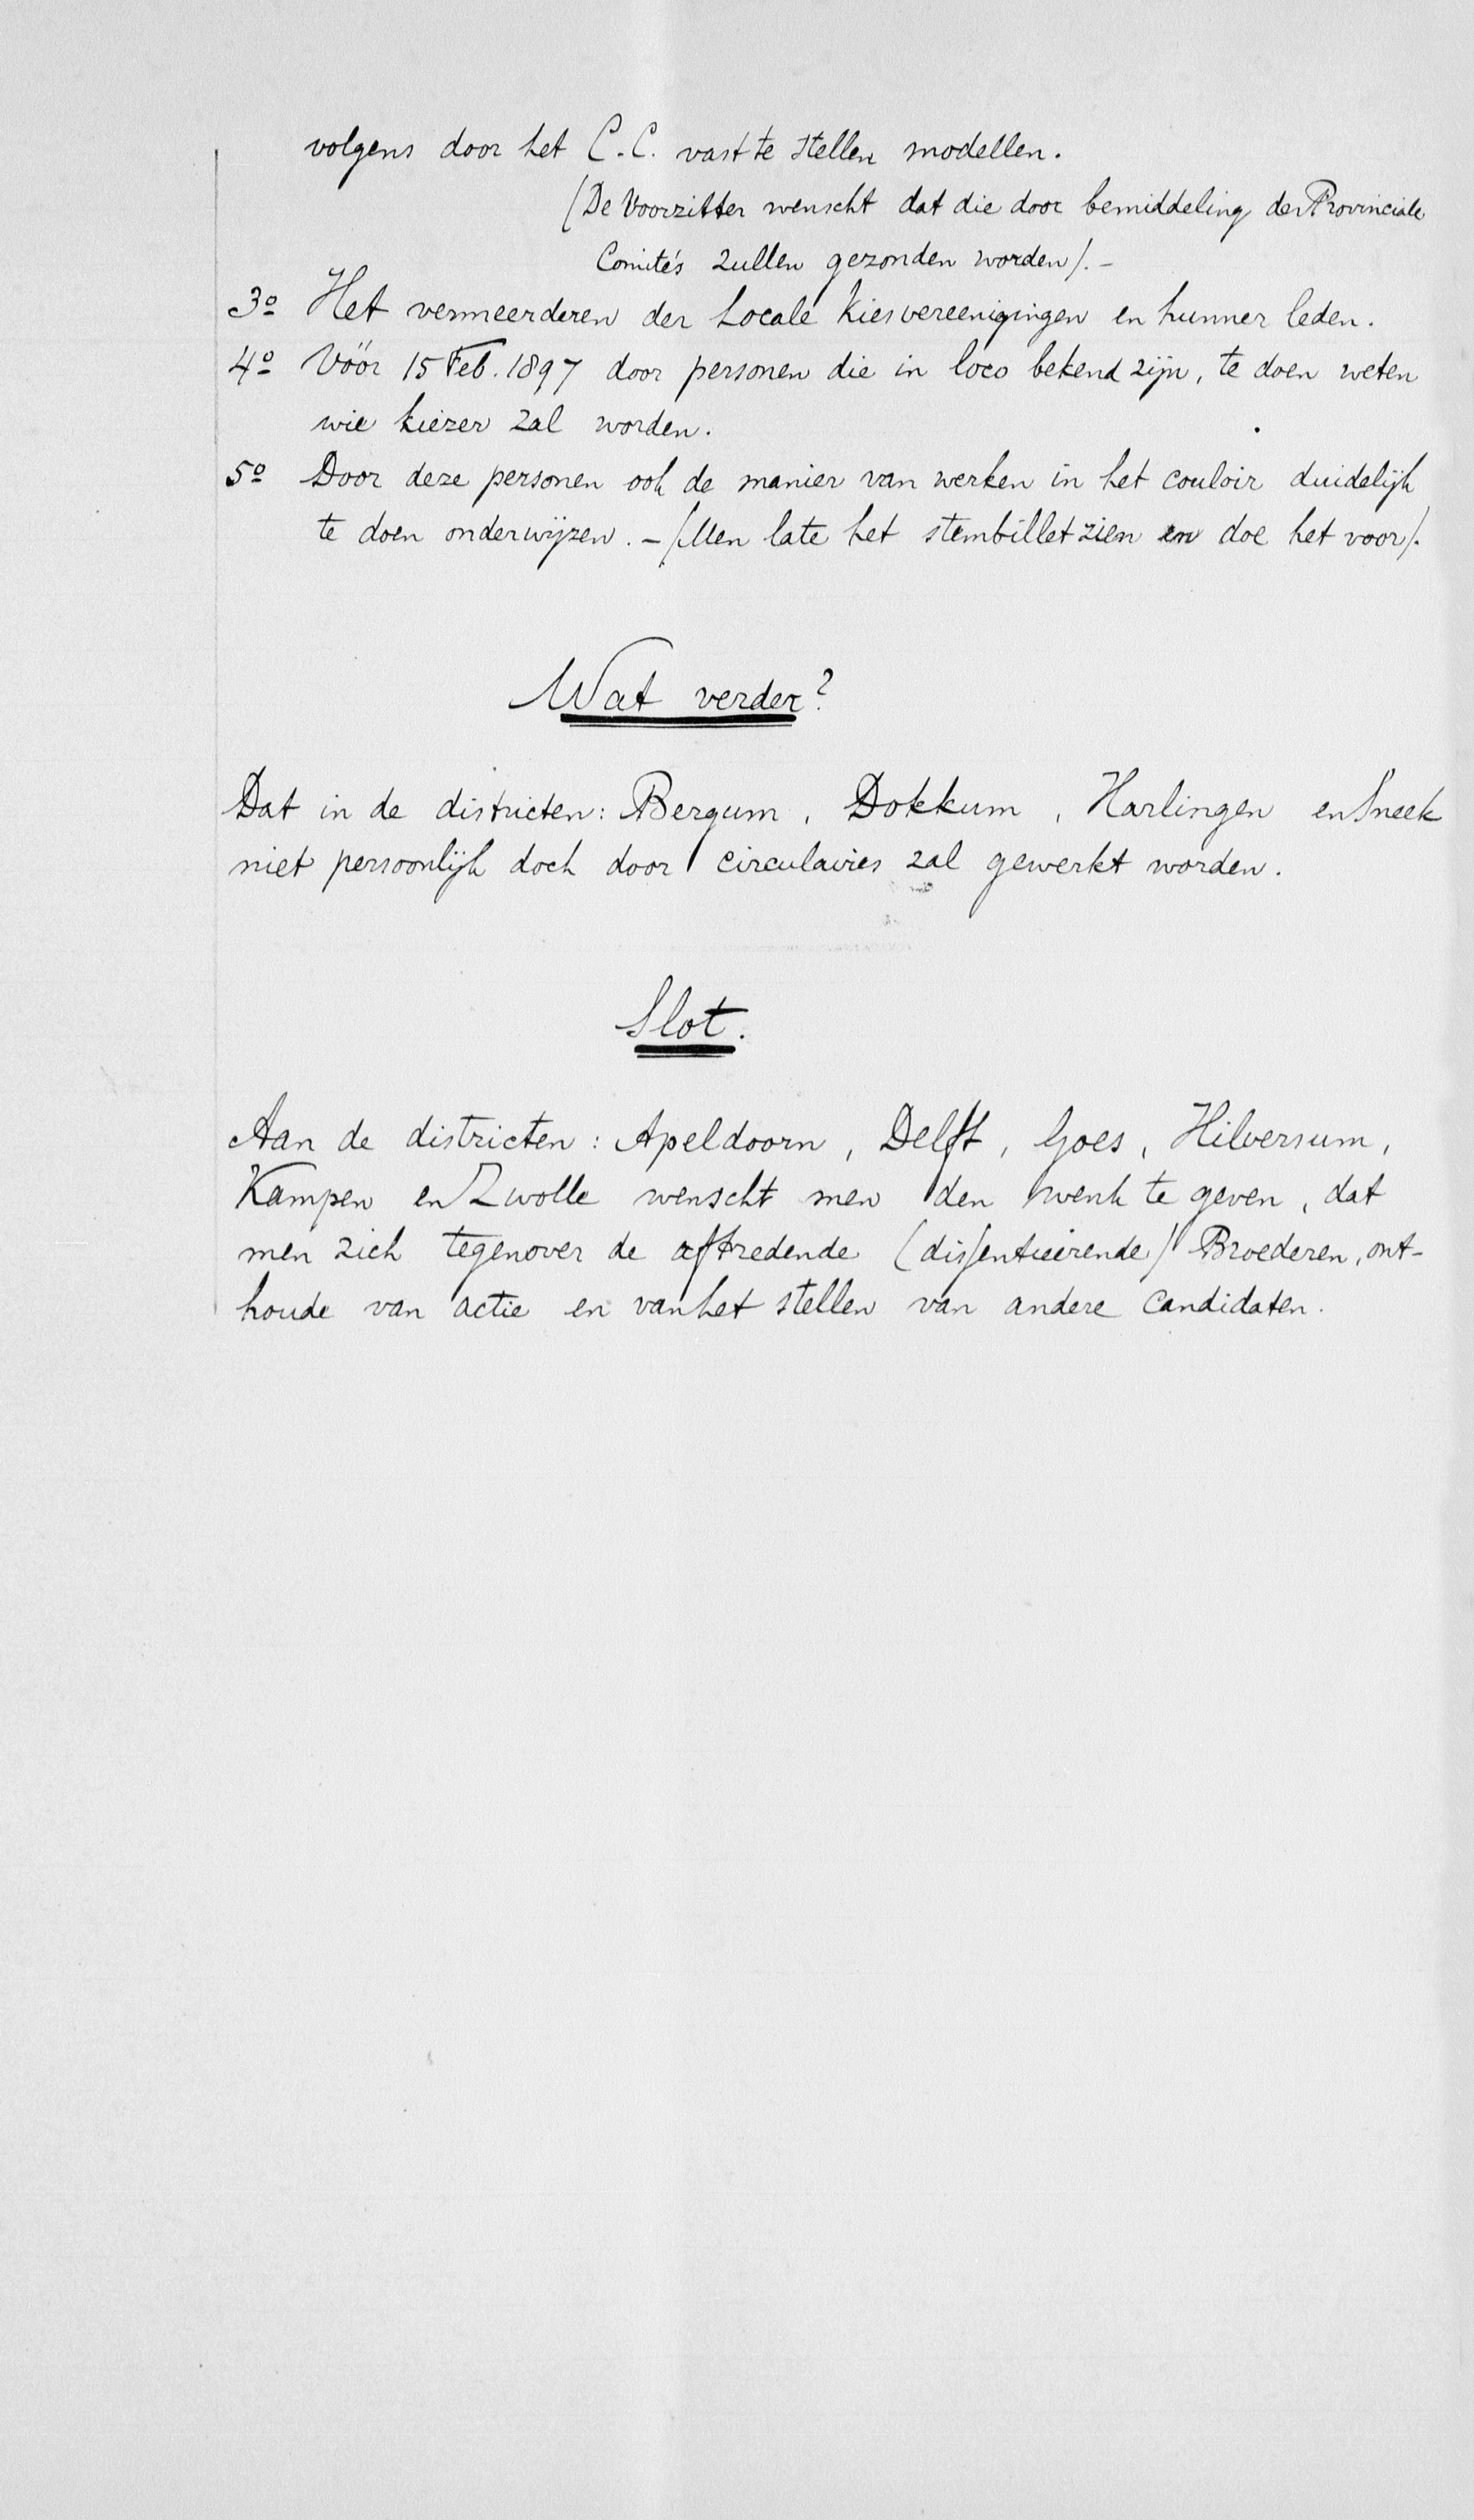 volgens door het C.C. vast te stellen modellen.
(De Voorzitter wenscht dat die door bemiddeling der Provinciale
Comité's zullen gezonden worden). -
3o Het vermeerderen der Locale Kiesvereenigingen en hunner leden.
4o Vóór 15 Feb. 1897 door personen die in loco bekend zijn, te doen weten
wie kiezer zal worden.
5o Door deze personen ook de manier van werken in het couloir duidelijk
te doen onderwijzen. - (Men late het stembillet zien en doe het voor).
Wat verder?
Dat in de districten: Bergum, Dokkum, Harlingen en Sneek
niet persoonlijk doch door circulaires zal gewerkt worden.
Slot.
Aan de districten: Apeldoorn, Delft, Goes, Hilversum,
Kampen en Zwolle wenscht men den wenk te geven, dat
men zich tegenover de aftredende (dissentieerende) Broederen, ont-
houde van actie en van het stellen van andere Candidaten.